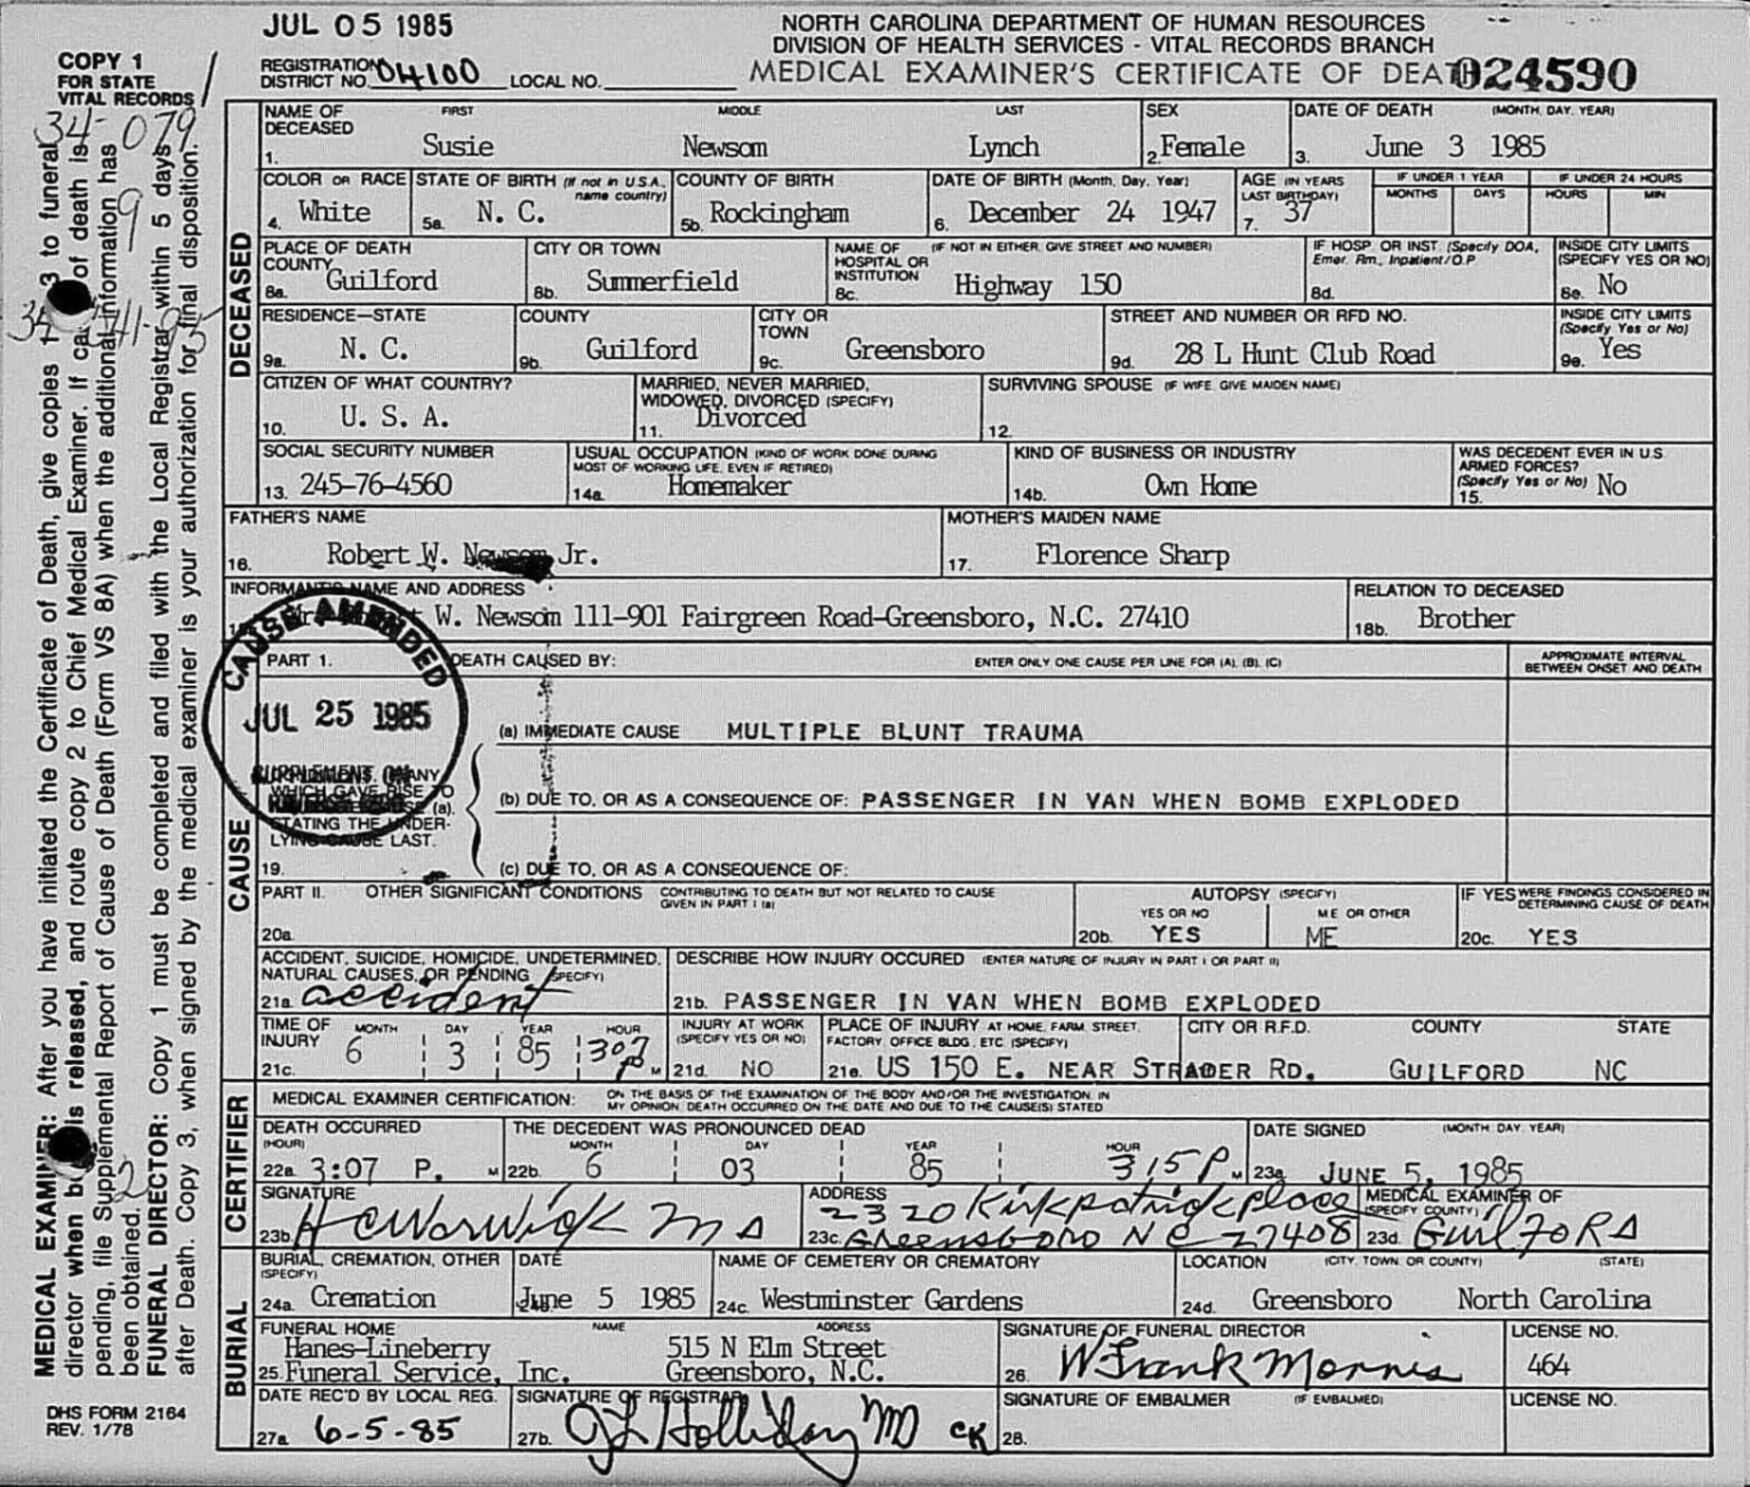 JUL 05 1985
NORTH CAROLINA DEPARTMENT OF HUMAN RESOURCES
DIVISION OF HEALTH SERVICES - VITAL RECORDS BRANCH
MEDICAL EXAMINER'S CERTIFICATE OF DEATH 024590
COPY 1
FOR STATE
VITAL RECORDS
REGISTRATION
DISTRICT NO. 04100 LOCAL NO.
34-079
9
MEDICAL EXAMINER: After you have initiated the Certificate of Death, give copies 1 3 to funeral
director when body is released, and route copy 2 to Chief Medical Examiner. If cause of death is
pending, file Supplemental Report of Cause of Death (Form VS 8A) when the additional information has
been obtained.
FUNERAL DIRECTOR: Copy 1 must be completed and filed with the Local Registrar within 5 days
after Death. Copy 3, when signed by the medical examiner is your authorization for final disposition.
2
DHS FORM 2164
REV. 1/78
DECEASED
NAME OF DECEASED FIRST MIDDLE LAST SEX DATE OF DEATH (MONTH, DAY, YEAR)
1. Susie Newsom Lynch 2. Female 3. June 3 1985
COLOR OR RACE STATE OF BIRTH (If not in U.S.A., name country) COUNTY OF BIRTH DATE OF BIRTH (Month, Day, Year) AGE (IN YEARS LAST BIRTHDAY) IF UNDER 1 YEAR MONTHS DAYS IF UNDER 24 HOURS HOURS MIN
4. White 5a. N. C. 5b. Rockingham 6. December 24 1947 7. 37
PLACE OF DEATH COUNTY CITY OR TOWN NAME OF HOSPITAL OR INSTITUTION (IF NOT IN EITHER, GIVE STREET AND NUMBER) IF HOSP. OR INST. (Specify DOA, Emer. Rm., Inpatient/O.P. INSIDE CITY LIMITS (SPECIFY YES OR NO)
8a. Guilford 8b. Summerfield 8c. Highway 150 8d. 8e. No
RESIDENCE—STATE COUNTY CITY OR TOWN STREET AND NUMBER OR RFD NO. INSIDE CITY LIMITS (Specify Yes or No)
9a. N. C. 9b. Guilford 9c. Greensboro 9d. 28 L Hunt Club Road 9e. Yes
CITIZEN OF WHAT COUNTRY? MARRIED, NEVER MARRIED, WIDOWED, DIVORCED (SPECIFY) SURVIVING SPOUSE (IF WIFE, GIVE MAIDEN NAME)
10. U. S. A. 11. Divorced 12.
SOCIAL SECURITY NUMBER USUAL OCCUPATION (KIND OF WORK DONE DURING MOST OF WORKING LIFE, EVEN IF RETIRED) KIND OF BUSINESS OR INDUSTRY WAS DECEDENT EVER IN U.S. ARMED FORCES? (Specify Yes or No)
13. 245-76-4560 14a. Homemaker 14b. Own Home 15. No
FATHER'S NAME MOTHER'S MAIDEN NAME
16. Robert W. Newsom Jr. 17. Florence Sharp
INFORMANT'S NAME AND ADDRESS RELATION TO DECEASED
W. Newsom 111-901 Fairgreen Road-Greensboro, N.C. 27410 18b. Brother
CAUSE AMENDED
JUL 25 1985
SUPPLEMENT ON
CAUSE
PART 1. DEATH CAUSED BY: ENTER ONLY ONE CAUSE PER LINE FOR (A), (B), (C) APPROXIMATE INTERVAL BETWEEN ONSET AND DEATH
(a) IMMEDIATE CAUSE MULTIPLE BLUNT TRAUMA
CONDITIONS, IF ANY,
WHICH GAVE RISE TO
(a).
STATING THE UNDER-
LYING CAUSE LAST.
(b) DUE TO, OR AS A CONSEQUENCE OF: PASSENGER IN VAN WHEN BOMB EXPLODED
19. (c) DUE TO, OR AS A CONSEQUENCE OF:
PART II. OTHER SIGNIFICANT CONDITIONS CONTRIBUTING TO DEATH BUT NOT RELATED TO CAUSE GIVEN IN PART I (a) AUTOPSY (SPECIFY) YES OR NO ME OR OTHER IF YES WERE FINDINGS CONSIDERED IN DETERMINING CAUSE OF DEATH
20a. 20b. YES ME 20c. YES
ACCIDENT, SUICIDE, HOMICIDE, UNDETERMINED, NATURAL CAUSES, OR PENDING (SPECIFY) DESCRIBE HOW INJURY OCCURED (ENTER NATURE OF INJURY IN PART I OR PART II)
21a. accident 21b. PASSENGER IN VAN WHEN BOMB EXPLODED
TIME OF INJURY MONTH DAY YEAR HOUR INJURY AT WORK (SPECIFY YES OR NO) PLACE OF INJURY AT HOME, FARM, STREET, FACTORY, OFFICE BLDG., ETC. (SPECIFY) CITY OR R.F.D. COUNTY STATE
21c. 6 3 85 307 P M 21d. NO 21e. US 150 E. NEAR STRADER RD. GUILFORD NC
CERTIFIER
MEDICAL EXAMINER CERTIFICATION: ON THE BASIS OF THE EXAMINATION OF THE BODY AND/OR THE INVESTIGATION, IN MY OPINION, DEATH OCCURRED ON THE DATE AND DUE TO THE CAUSE(S) STATED
DEATH OCCURRED (HOUR) THE DECEDENT WAS PRONOUNCED DEAD MONTH DAY YEAR HOUR DATE SIGNED (MONTH, DAY, YEAR)
22a. 3:07 P. M 22b. 6 03 85 315 P M 23a. JUNE 5, 1985
SIGNATURE ADDRESS MEDICAL EXAMINER OF (SPECIFY COUNTY)
23b. H C Warwick MD 23c. 2320 Kirkpatrick place Greensboro NC 27408 23d. Guilford
BURIAL
BURIAL, CREMATION, OTHER (SPECIFY) DATE NAME OF CEMETERY OR CREMATORY LOCATION (CITY, TOWN, OR COUNTY) (STATE)
24a. Cremation 24b. June 5 1985 24c. Westminster Gardens 24d. Greensboro North Carolina
FUNERAL HOME NAME ADDRESS SIGNATURE OF FUNERAL DIRECTOR LICENSE NO.
Hanes-Lineberry 515 N Elm Street
25. Funeral Service, Inc. Greensboro, N.C. 26. W Frank Morris 464
DATE REC'D BY LOCAL REG. SIGNATURE OF REGISTRAR SIGNATURE OF EMBALMER (IF EMBALMED) LICENSE NO.
27a. 6-5-85 27b. Holliday MD CK 28.